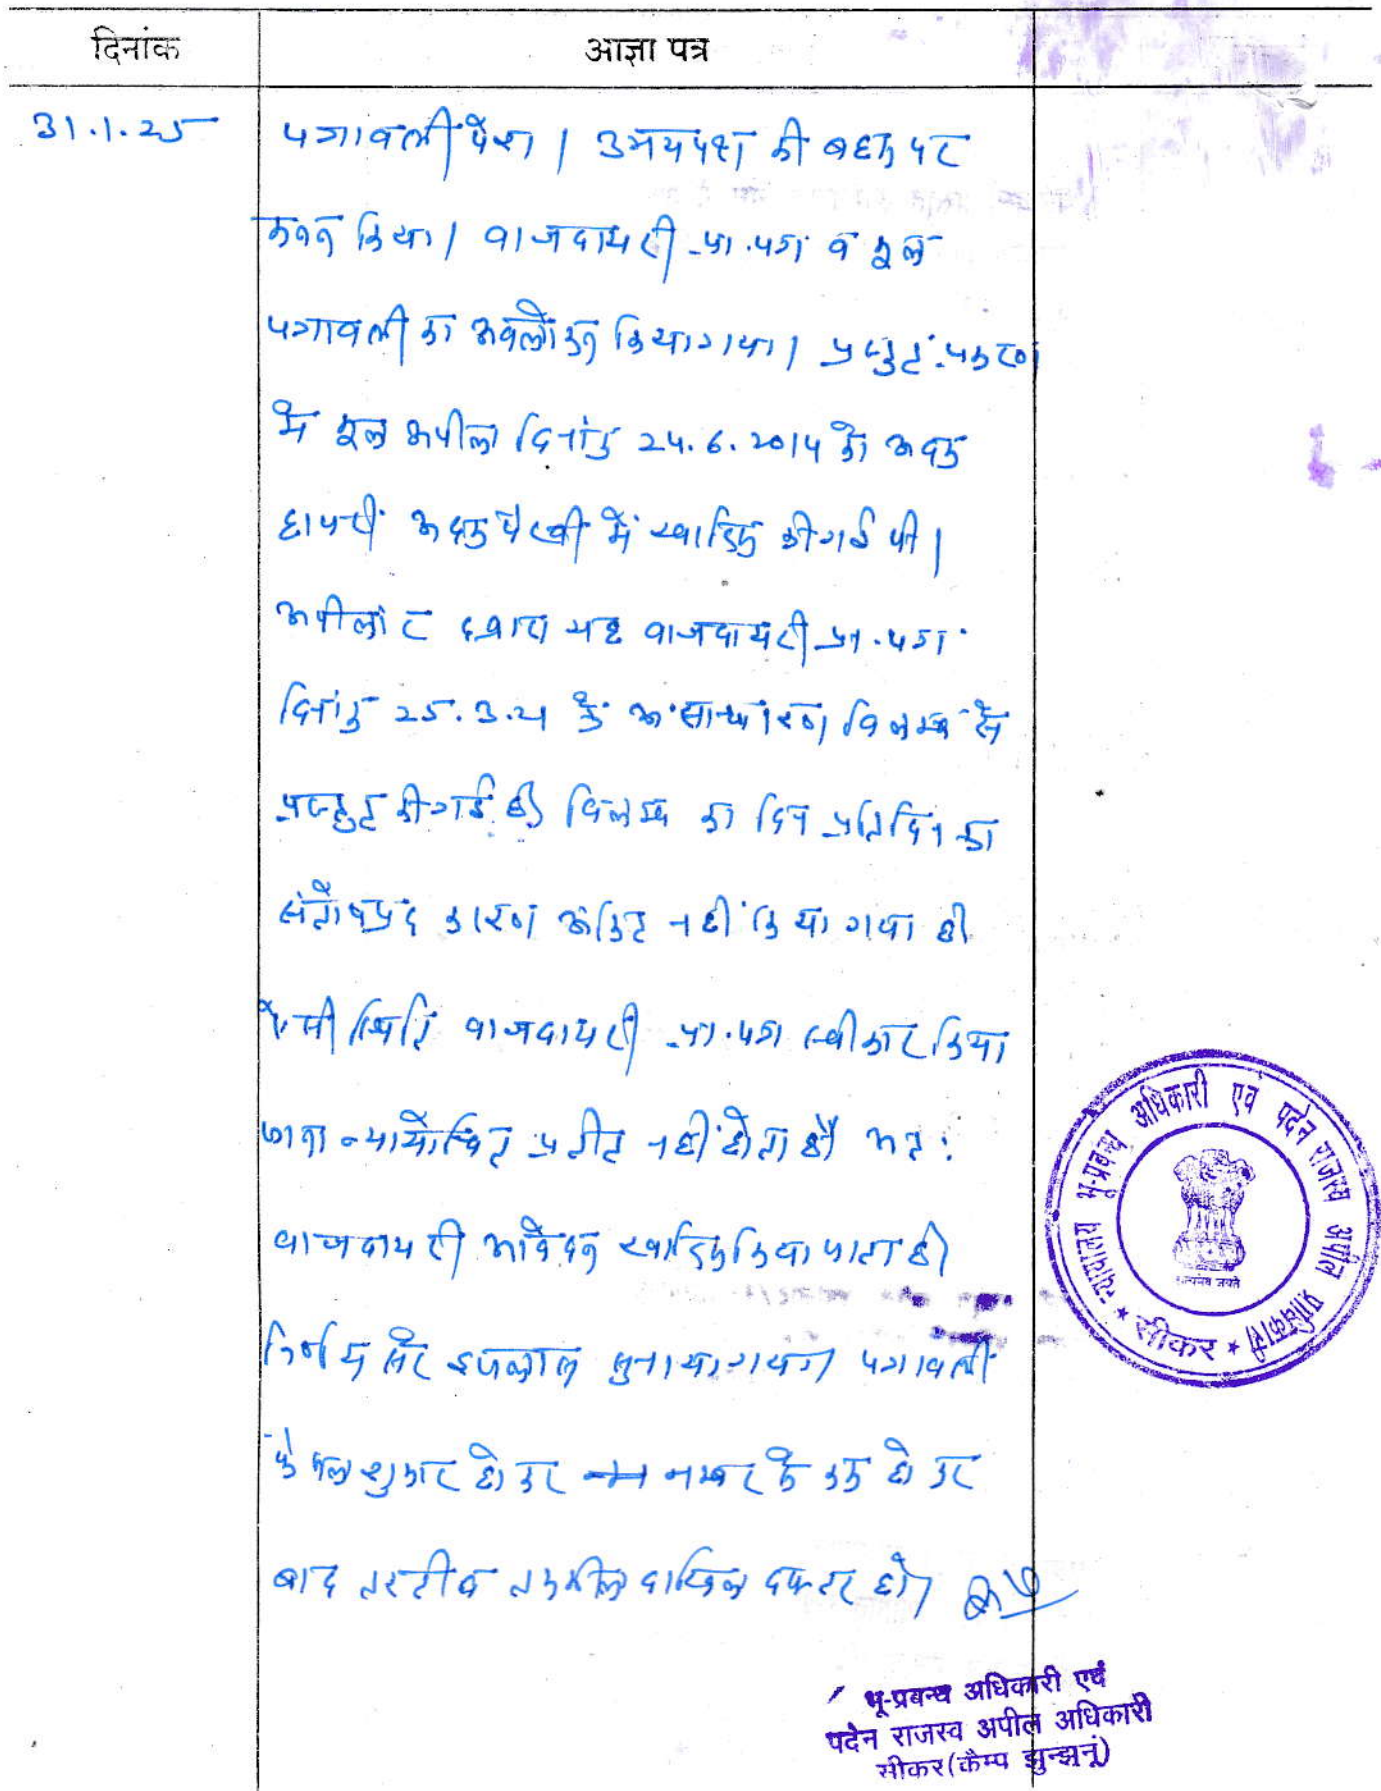 दिनांक
आज्ञा पत्र
31.1.25
पत्रावली पेश। उभयपक्ष की बहस पर
मनन किया। बाजदायरी प्रा.पत्र व मूल
पत्रावली का अवलोकन किया गया। प्रस्तुत प्रकरण
में मूल अपील दिनांक 24.6.2014 को अदम
हाजरी अदम पैरवी में खारिज की गई थी।
अपीलांट द्वारा यह बाजदायरी प्रा.पत्र
दिनांक 25.3.21 के असाधारण विलम्ब से
प्रस्तुत की गई है। विलम्ब का दिन प्रतिदिन का
संतोषप्रद कारण अंकित नहीं किया गया है।
ऐसी स्थिति बाजदायरी प्रा.पत्र स्वीकार किया
जाना न्यायोचित प्रतीत नहीं होता है अतः
बाजदायरी आवेदन खारिज किया जाता है।
निर्णय सरे इजलास सुनाया गया। पत्रावली
फैसल शुमार होकर नम्बर से कम होकर
बाद तरतीब तकमील दाखिल दफ्तर हो।
न्यायालय भू-प्रबन्ध अधिकारी एवं पदेन राजस्व अपील प्राधिकारी
सत्यमेव जयते
सीकर
भू-प्रबन्ध अधिकारी एवं
पदेन राजस्व अपील अधिकारी
सीकर (कैम्प झुन्झुनूं)